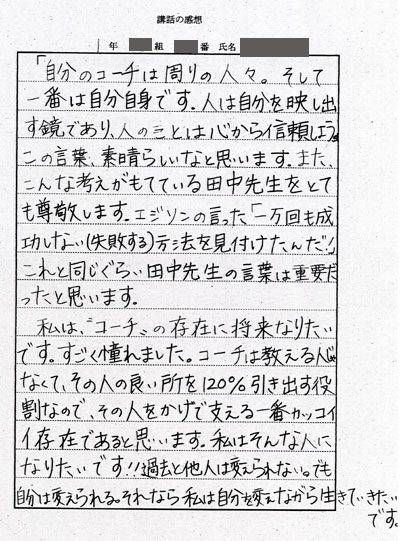 講話の感想
1年 組 番 氏名
「自分のコーチは周りの人々。そして
一番は自分自身です。人は自分を映し出
す鏡であり、人のことは心から信頼しよう。
この言葉、素晴らしいなと思います。また、
こんな考えがもてている田中先生をとて
も尊敬します。エジソンの言った「一万回も成
功しない(失敗する)方法を見付けたんだ!」
これと同じぐらい田中先生の言葉は重要だ
ったと思います。
私は、"コーチ"の存在に将来なりたい
です。すごく憧れました。コーチは教える人じゃ
なくて、その人の良い所を120%引き出す役
割なので、その人をかげで支える一番カッコイ
イ存在であると思います。私はそんな人に
なりたいです!!過去と他人は変えられない。でも
自分は変えられる。それなら私は自分を変えながら生きていきたい
です。